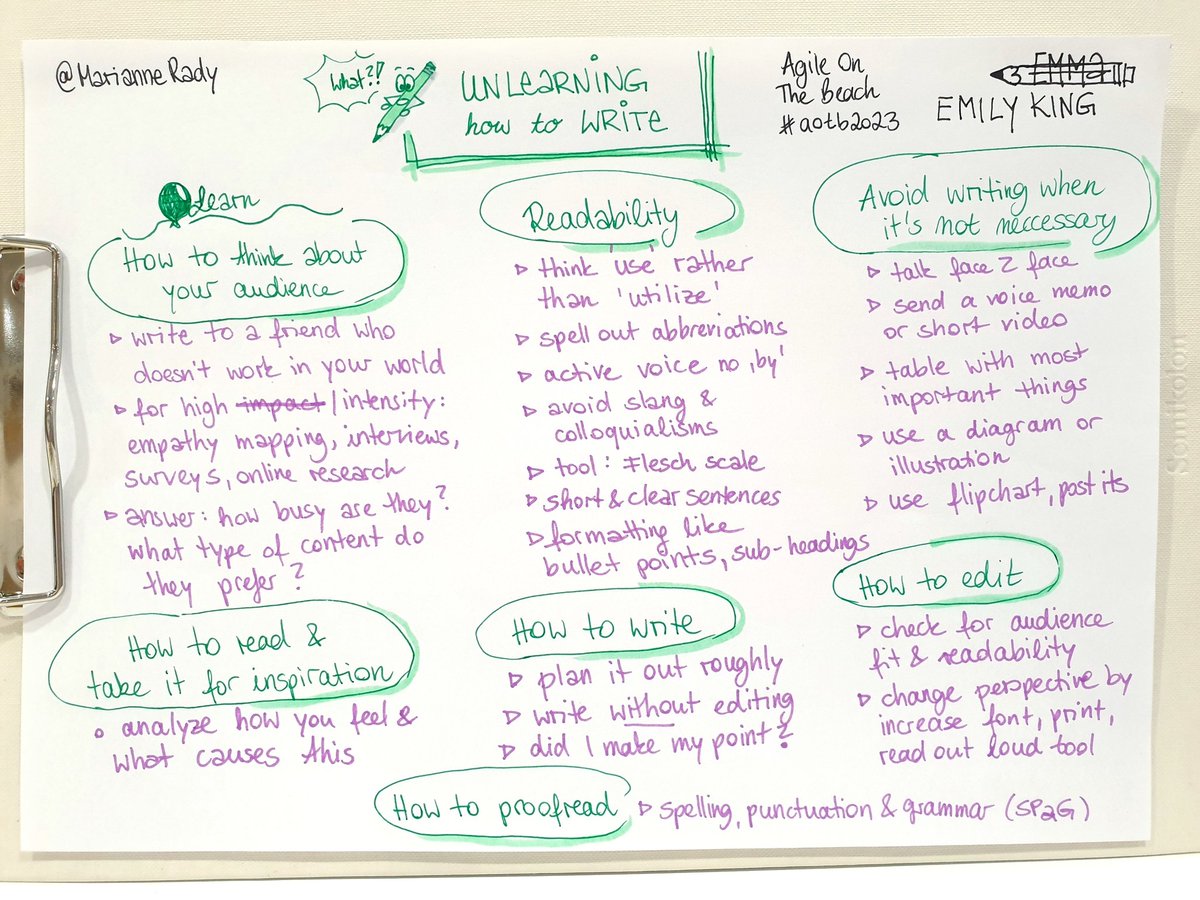 @MarianneRady
What?!
UNLEARNING
how to WRITE
Agile On
The Beach
#aotb2023
EMMA
EMILY KING
Learn
How to think about
your audience
▹ write to a friend who
doesn't work in your world
▹ for high impact/intensity:
empathy mapping, interviews,
surveys, online research
▹ answer: how busy are they?
what type of content do
they prefer?
How to read &
take it for inspiration
• analyze how you feel &
what causes this
Readability
▹ think 'use' rather
than 'utilize'
▹ spell out abbreviations
▹ active voice no ‚by'
▹ avoid slang &
colloquialisms
▹ tool: Flesch scale
▹ short & clear sentences
▹ formatting like
bullet points, sub-headings
How to write
▹ plan it out roughly
▹ write without editing
▹ did I make my point?
Avoid writing when
it's not neccessary
▹ talk face 2 face
▹ send a voice memo
or short video
▹ table with most
important things
▹ use a diagram or
illustration
▹ use flipchart, post its
How to edit
▹ check for audience
fit & readability
▹ change perspective by
increase font, print,
read out loud tool
How to proofread
▹ spelling, punctuation & grammar (SP2G)
Semikolon